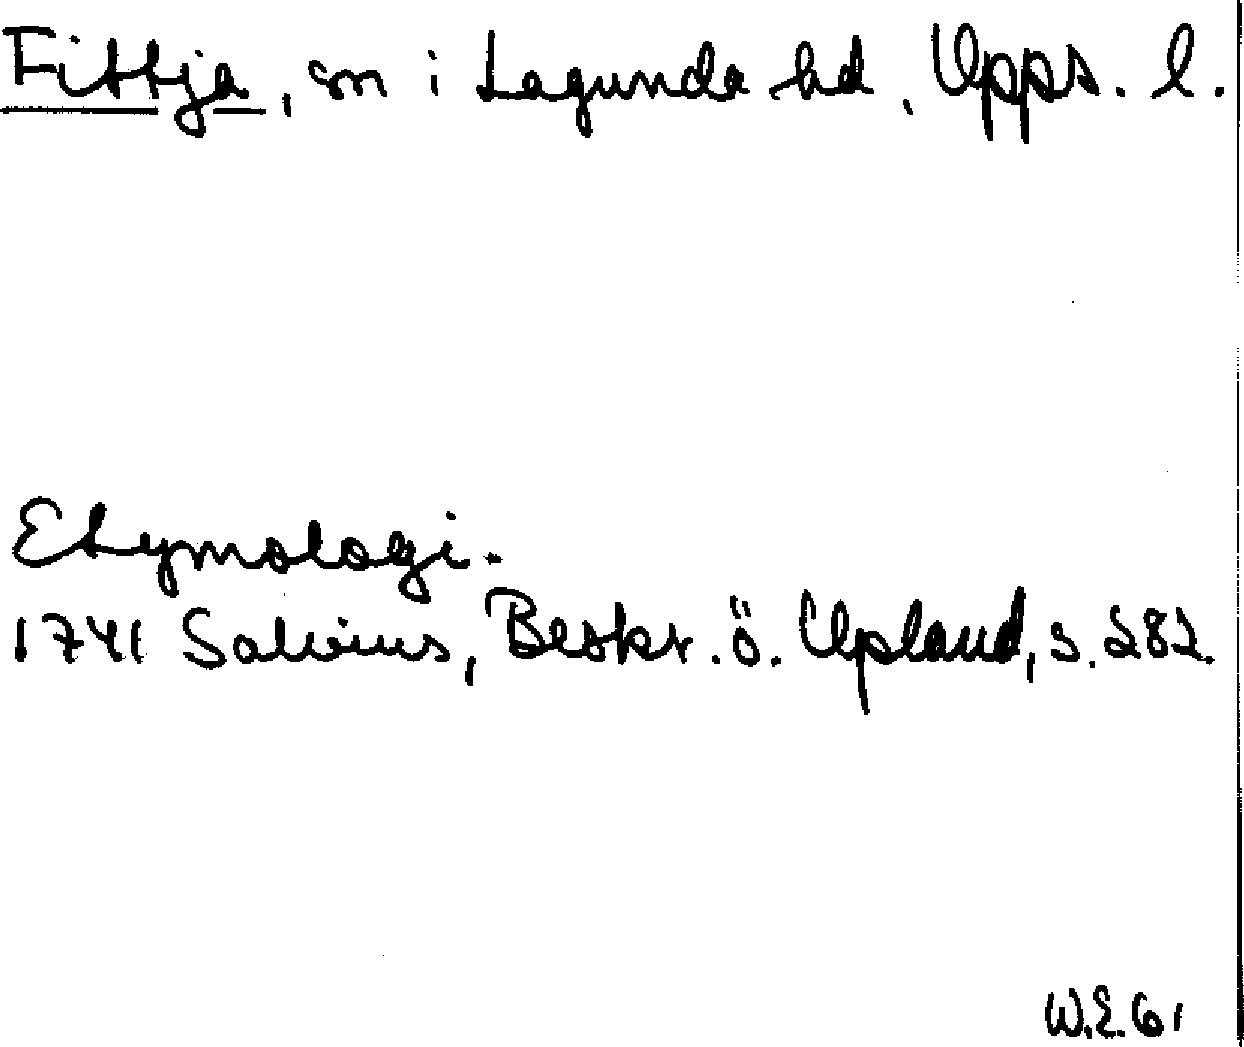 Fittja, sn i Lagunda hd, Upps. l.
Etymologi.
1741 Salvius, Beskr. ö. Upland, s. 282.
W.E. 61